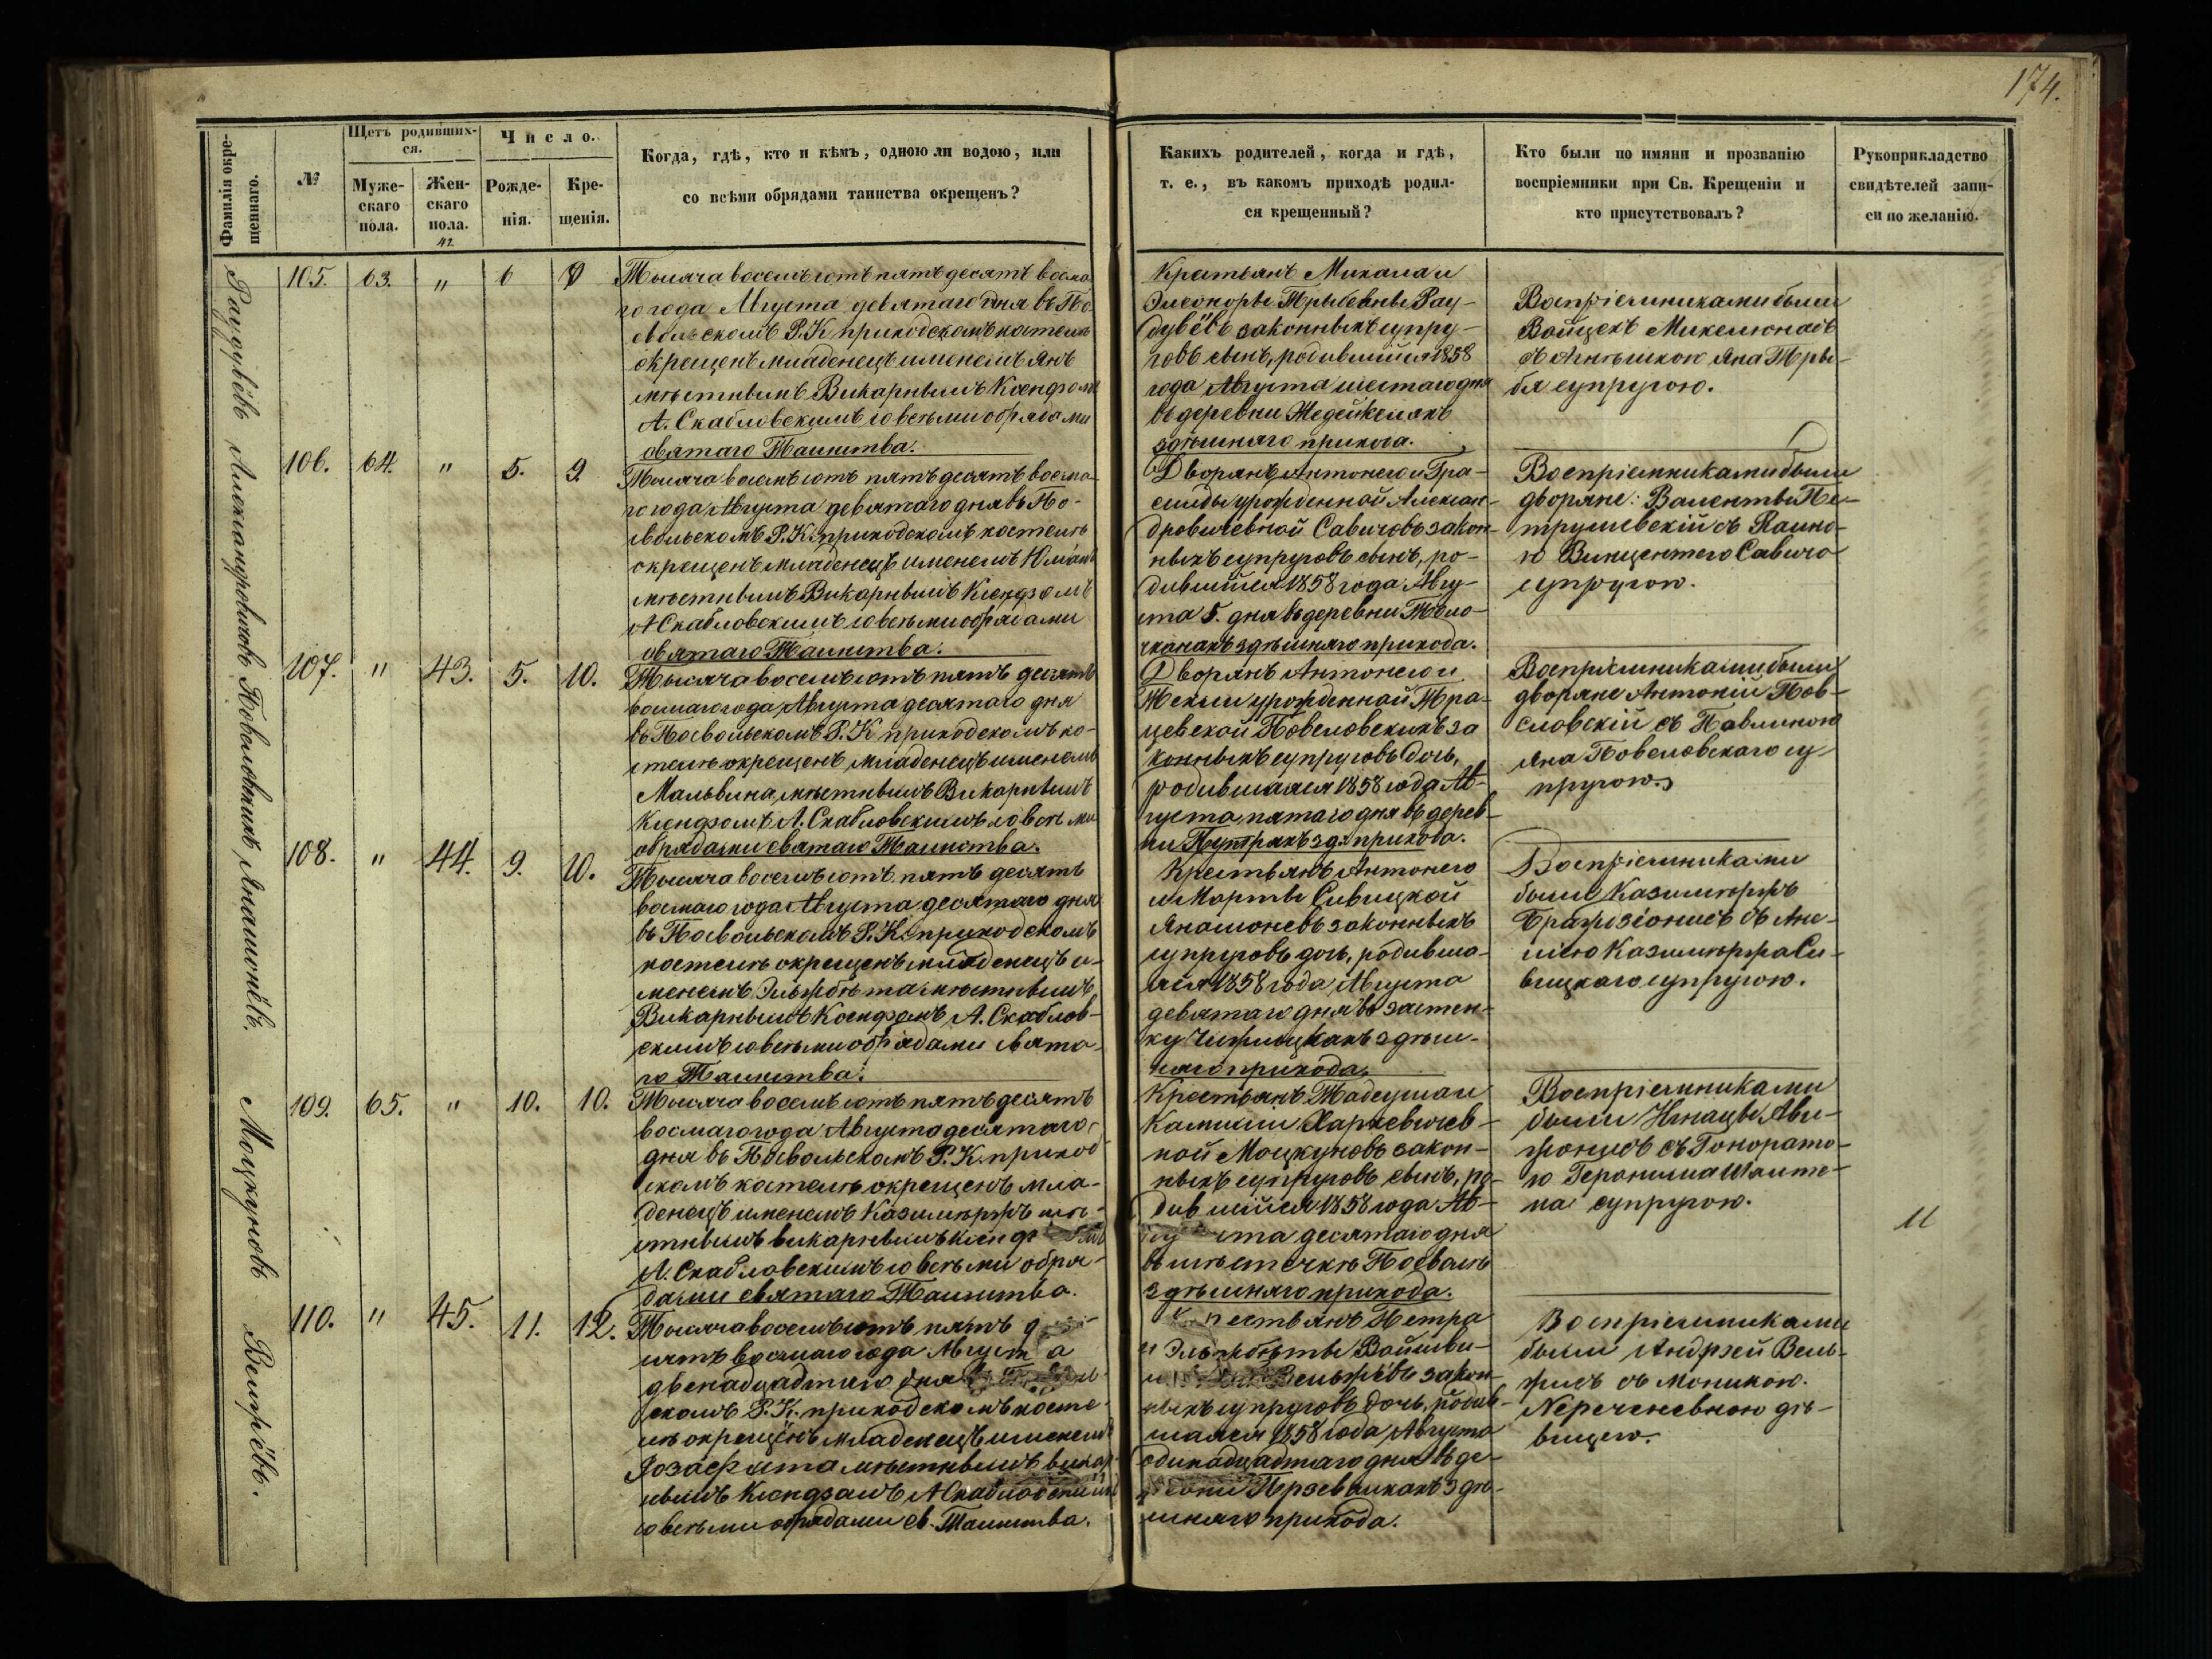 174.
Фамилія окре-
щеннаго.
№
Щетъ родивших-
ся.
Муже-
скаго
пола.
Жен-
скаго
пола.
42
Число.
Рожде-
нія.
Кре-
щенія.
Когда, гдѣ, кто и кѣмъ, одною ли водою, или
со всѣми обрядами таинства окрещенъ?
Какихъ родителей, когда и гдѣ,
т. е., въ какомъ приходѣ родил-
ся крещенный?
Кто были по имяни и прозванію
воспріемники при Св. Крещеніи и
кто присутствовалъ?
Рукоприкладство
свидѣтелей запи-
си по желанію.
105. 63. " 6 9
Тысяча восемъсотъ пятъдесятъ восма
го года Августа девятаго дня въ По-
свольскомъ Р. К приходскомъ костелѣ
окрещенъ младенецъ именемъ Янъ
мѣстнымъ Викарнымъ Ксендзомъ
А. Скабловскимъ со всѣми обрядами
святаго Таинства.
Крестьянъ Михала и
Элеоноры Рау-
дувёвъ законныхъ супру-
говъ сынъ, родившійся 1858
года Августа шестаго дня
въ деревни
здѣшняго прихода.
Воспріемниками были
Войцехъ
съ Яна
супругою.
106. 64. " 5. 9.
Тысяча восемъсотъ пятъдесятъ восма-
го года Августа девятаго дня въ По-
свольскомъ Р. К. приходскомъ костелѣ
окрещенъ младенецъ именемъ Юліанъ
мѣстнымъ Викарнымъ Ксендзомъ
А Скабловскимъ со всѣми обрядами
святаго Таинства.
Дворянъ Антонего и
урожденной Алексан-
дровичевной Савичовъ закон-
ныхъ супруговъ сынъ, ро-
дившійся 1858 года Авгу-
ста 5. дня въ деревни
здѣшняго прихода.
Воспріемниками были
дворяне: Валенты Пе-
трушевскій съ
Винцентего Савича
супругою.
107. " 43. 5. 10.
Тысяча восемъсотъ пятъ десятъ
восмаго года Августа десятаго дня
въ Посвольскомъ Р. К приходскомъ ко-
стелѣ окрещенъ младенецъ именемъ
Мальвина, мѣстнымъ Викарнымъ
Ксендзомъ А. Скабловскимъ со всѣми
обрядами святаго Таинства.
Дворянъ Антонего и
Теклии урожденной
Повсловскихъ за
конныхъ супруговъ дочь,
родившаяся 1858 года Ав-
густа пятаго дня въ дерев-
ни зд. прихода.
Воспріемниками были
дворяне Антоній Пов-
словскій съ Павлиною
Яна Повсловскаго су-
пругою.
108. " 44. 9. 10.
Тысяча восемъсотъ пятъ десятъ
восмаго года Августа десятаго дня
въ Посвольскомъ Р. К. приходскомъ
костелѣ окрещенъ младенецъ и-
менемъ Эльжбѣта мѣстнымъ
Викарнымъ Ксендзомъ А. Скаблов-
скимъ со всѣми обрядами свята-
го Таинства.
Крестьянъ Антонего
и Марты Сивицкой
Янамонёвъ законныхъ
супруговъ дочь, родивша-
яся 1858 года Августа
девятаго дня въ застен-
ку здѣш-
няго прихода.
Воспріемниками
были Казимѣржъ
съ
Казимѣржа Си-
вицкаго супругою.
109. 65. " 10. 10.
Тысяча восемъсотъ пятъдесятъ
восмаго года Августа десятаго
дня въ Посвольскомъ Р. К. приход
скомъ костелѣ окрещенъ мла-
денецъ именемъ Казимѣржъ мѣ-
стнымъ викарнымъ
А. Скабловскимъ со всѣми обря-
дами святаго Таинства.
Крестьянъ Тадеуша и
Камилии Харкевичев-
ной Моцкуновъ закон-
ныхъ супруговъ сынъ, ро-
дившійся 1858 года Ав-
густа десятаго дня
въ мѣстечкѣ Посволь
здѣшняго прихода.
Воспріемниками
были Игнацы
съ Гоноратою
Геронима
супругою.
11
110. " 45. 11. 12.
Тысяча восемъсотъ пятъ
сятъ восмаго года Августа
двенадцадтаго дня
скомъ Р. К. приходскомъ косте-
лѣ окрещенъ младенецъ именемъ
мѣстнымъ викар-
нымъ Ксендзомъ А Скабловскимъ
со всѣми обрядами св. Таинства.
Крестьянъ Петра
и Эльжбѣты
закон-
ныхъ супруговъ дочь, родив-
шаяся 1858 года Августа
одинадцадтаго дня въ де-
ревни здѣ-
шняго прихода.
Воспріемниками
были Андржей Вель-
жисъ съ Моникою
дѣ-
вицею.
Раудувёвъ Александровичовъ Повсловскихъ Янамонёвъ. Моцкуновъ